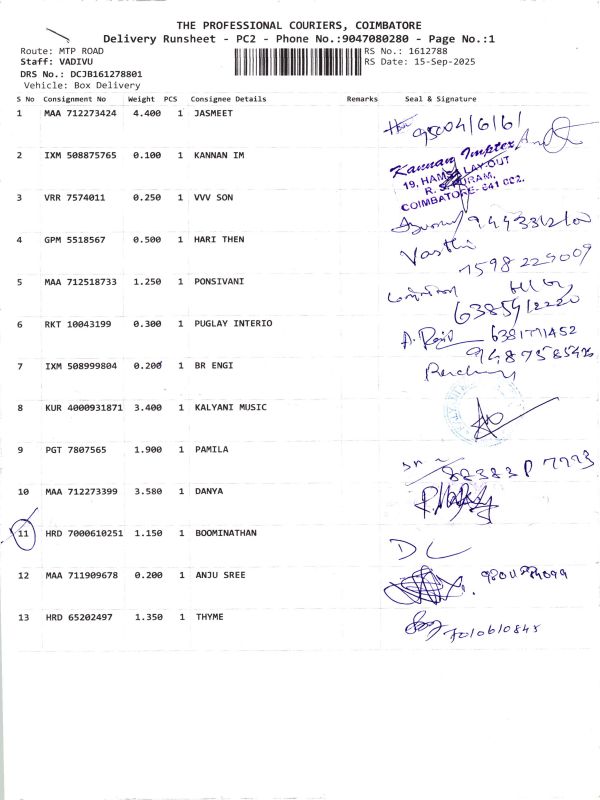 THE PROFESSIONAL COURIERS, COIMBATORE
Delivery Runsheet - PC2 - Phone No.:9047080280 - Page No.:1
Route: MTP ROAD RS No.: 1612788
Staff: VADIVU RS Date: 15-Sep-2025
DRS No.: DCJB161278801
Vehicle: Box Delivery
S No Consignment No Weight PCS Consignee Details Remarks Seal & Signature
1 MAA 712273424 4.400 1 JASMEET
2 IXM 508875765 0.100 1 KANNAN IM
Kannan Imptex
19, HAMSA LAYOUT
R. S. PURAM,
COIMBATORE- 641 002.
3 VRR 7574011 0.250 1 VVV SON
4 GPM 5518567 0.500 1 HARI THEN
Vasthi
7598 229009
5 MAA 712518733 1.250 1 PONSIVANI
6 RKT 10043199 0.300 1 PUGLAY INTERIO
6381771452
7 IXM 508999804 0.200 1 BR ENGI
8 KUR 4000931871 3.400 1 KALYANI MUSIC
9 PGT 7807565 1.900 1 PAMILA
10 MAA 712273399 3.580 1 DANYA
11 HRD 7000610251 1.150 1 BOOMINATHAN
DL
12 MAA 711909678 0.200 1 ANJU SREE
13 HRD 65202497 1.350 1 THYME